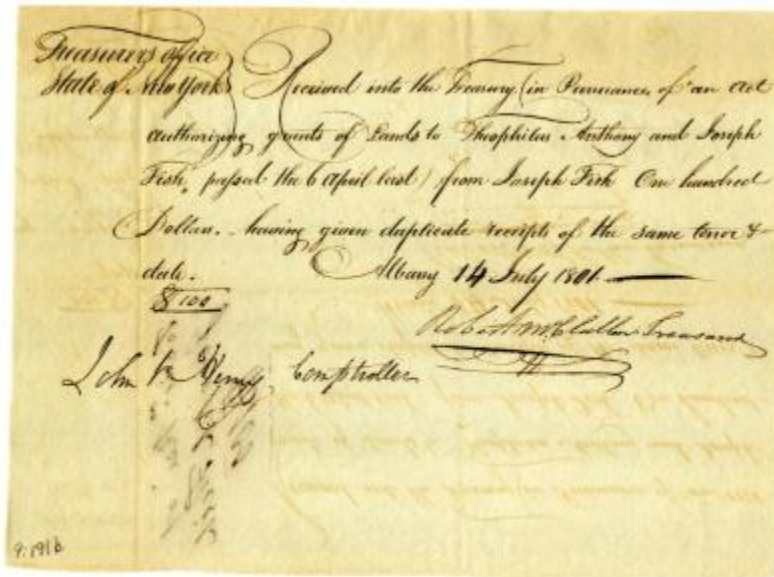 Treasurers office
State of New York
Received into the Treasury (in Pursuance of an act
authorizing grants of Lands to Theophilus Anthony and Joseph
Fish, passed the 6 April last) from Joseph Fish One hundred
Dollars. having given duplicate receipts of the same tenor &
date. Albany 14 July 1801.
$100
Robert McClallen Treasurer
John V Henry, Comptroller